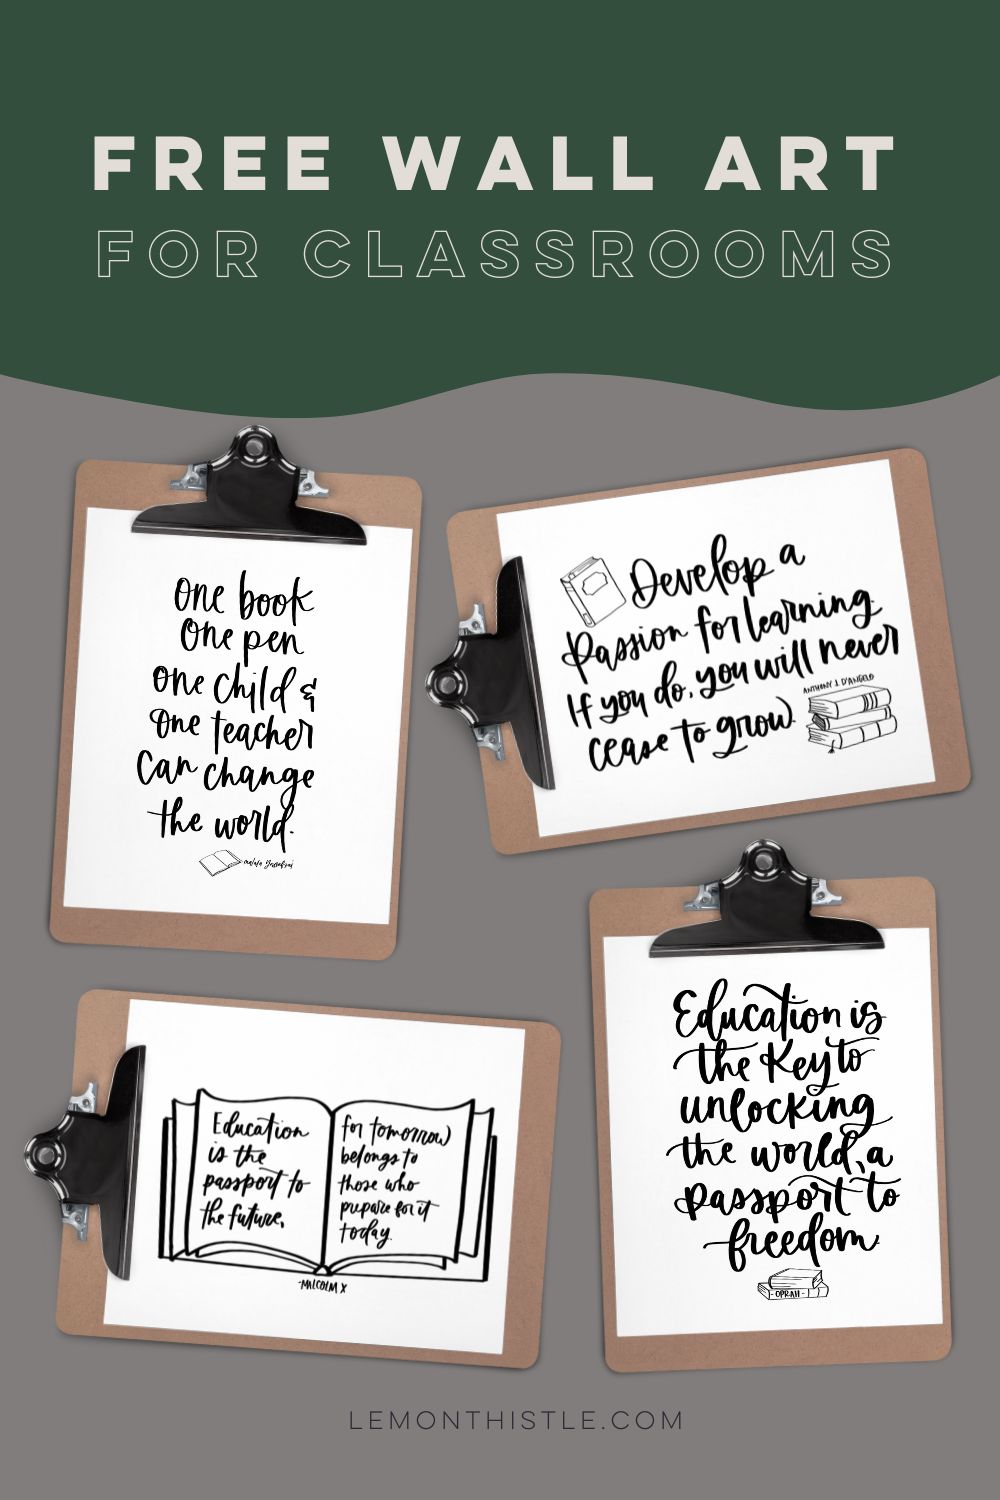 FREE WALL ART
FOR CLASSROOMS
one book
one pen
one child &
one teacher
can change
the world.
malala yousafzai
Develop a
passion for learning.
If you do, you will never
cease to grow.
ANTHONY J. D'ANGELO
Education
is the
passport to
the future,
for tomorrow
belongs to
those who
prepare for it
today.
-MALCOLM X
Education is
the key to
unlocking
the world, a
passport to
freedom.
- OPRAH -
LEMONTHISTLE.COM